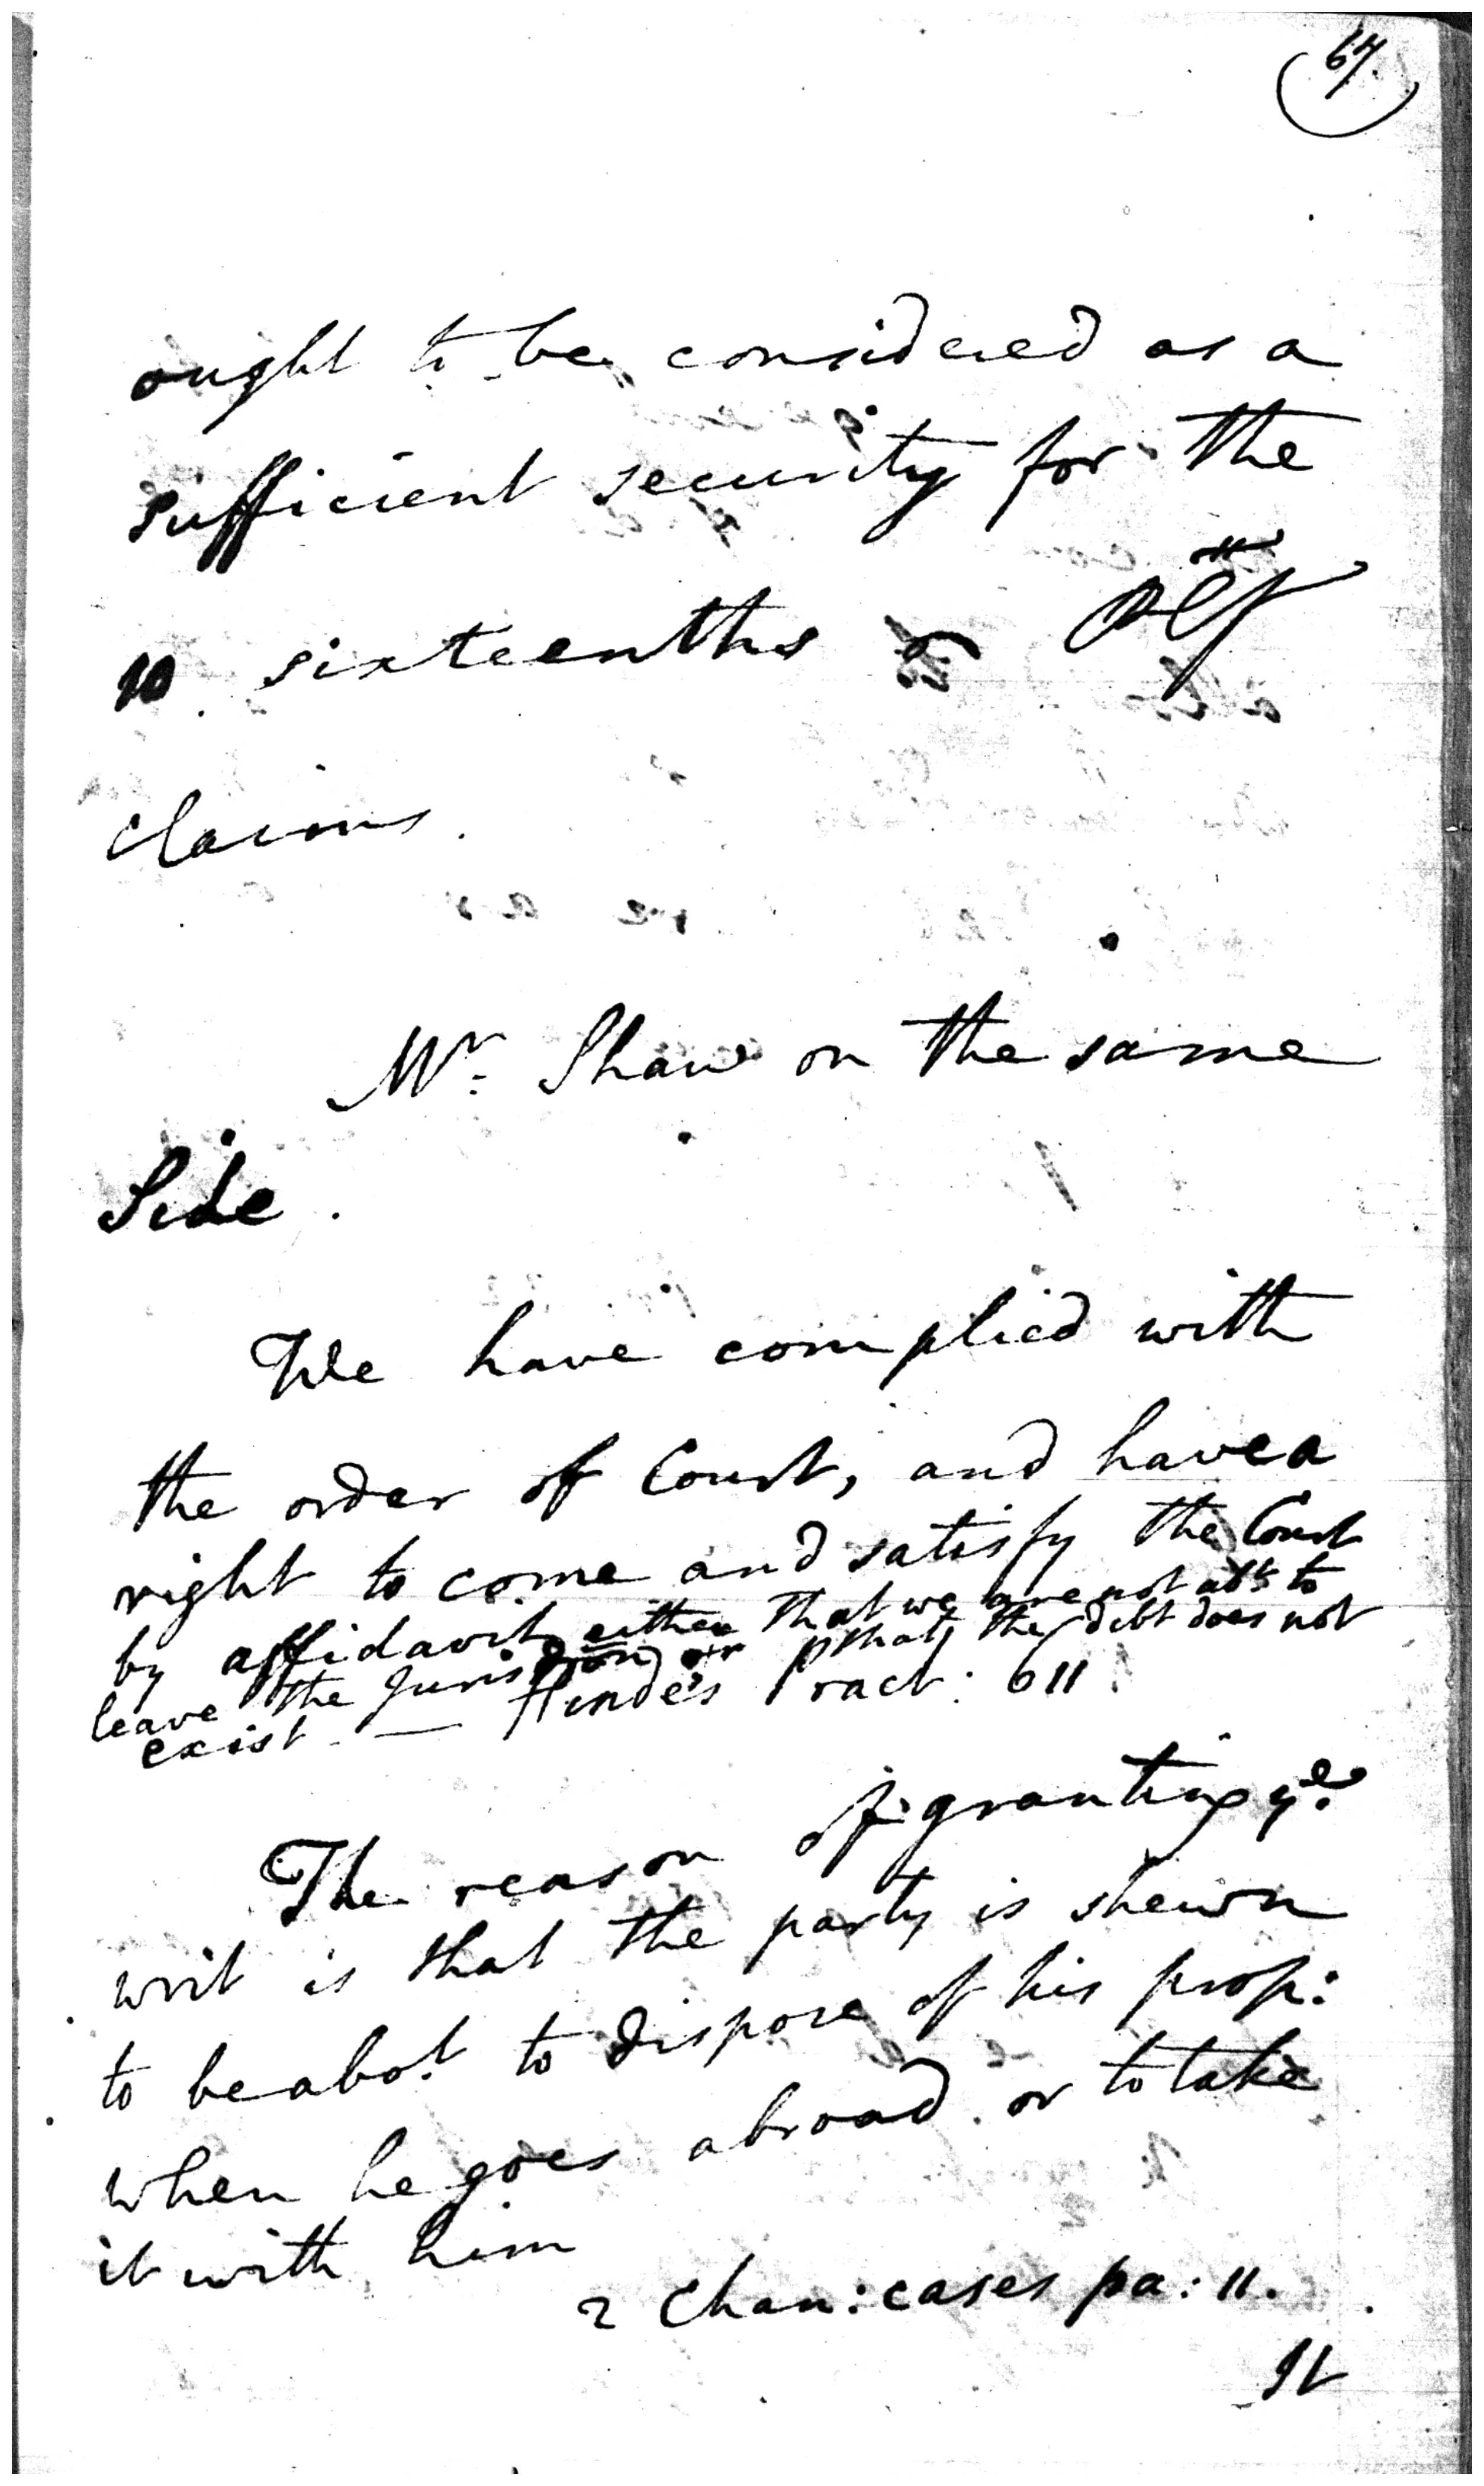 67.
ought to be considered as a
sufficient security for the
10 sixteenths Plff
claims.
Mr. Shaw on the same
Side.
We have complied with
the order of Court, and have a
right to come and satisfy the Court
by affidavit either that we are not abt to
leave the Jurisdon or that the debt does not
exist — Hinde's Pract: 611
The reason of granting ye.
writ is that the party is shewn
to be abot to dispose of his prop:
when he goes abroad or to take
it with him
2 Chan: cases pa: 11.
It